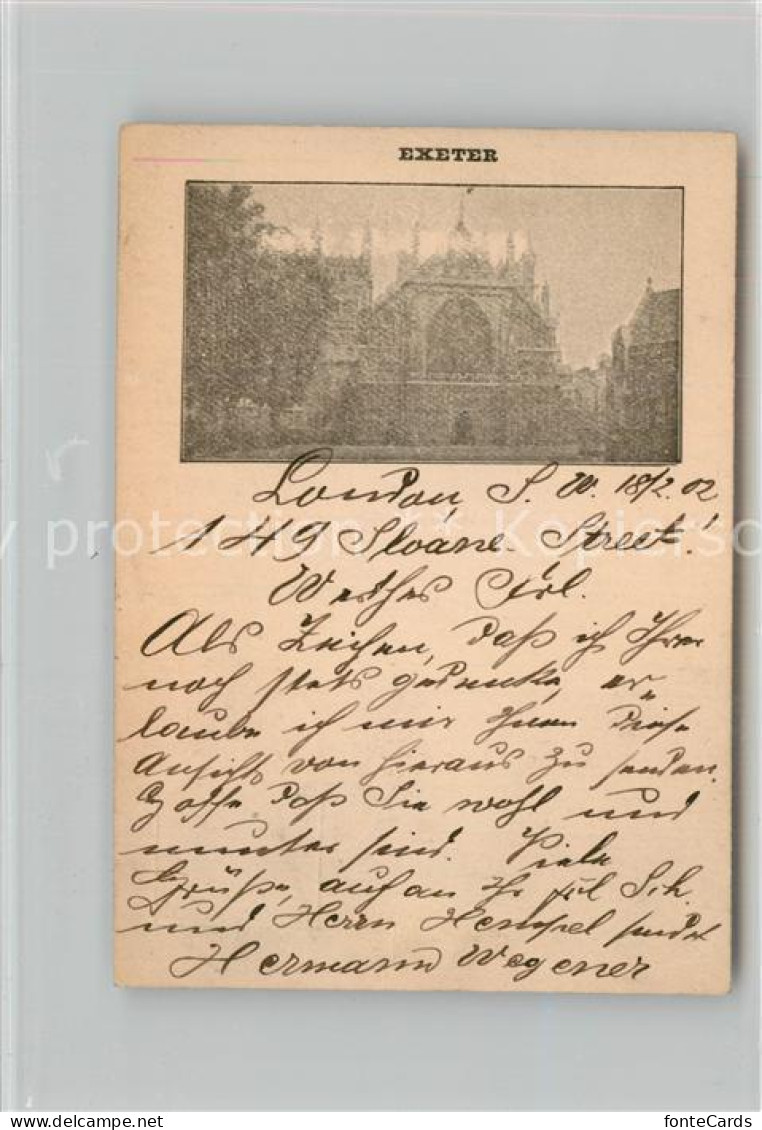 EXETER
London, S. W. 18/2. 02
149 Sloane Street!
Werthes Frl.
Als Zeichen, daß ich Ihrer
noch stets gedenke, er=
laube ich mir Ihnen diese
Ansicht von hieraus zu senden.
Hoffe daß Sie wohl und
munter sind. Viele
Grüße, auch an Ihr Frl Sch.
und Herrn Hempel sendet
Hermann Wegener
protection fonteCards
fonteCards